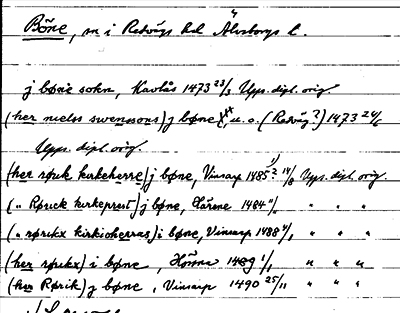 Böne, sn i Redvägs hd Älvsborgs l.
j bøne sokn, Kavlås 1473 23/3 Upps. dipl. orig.
(her nielss swenssons) j bøne, u. o. (Redväg?) 1473 24/6
Upps. dipl. orig.
(her røuk kirkeherre) j bøne, Vinsarp 1485? 14/8 Upps. dipl. orig.
(„ Rørick kirkeprest) j bøne, Hörne 1484 „ „ „
(„ rørikx kirkioherras) i bøne, Vinsarp 1488 „ „ „
(her rørikx) i bøne, Hörne 1489 1/1 „ „ „
(her Rørik) j bøne, Vinsarp 1490 25/11 „ „ „